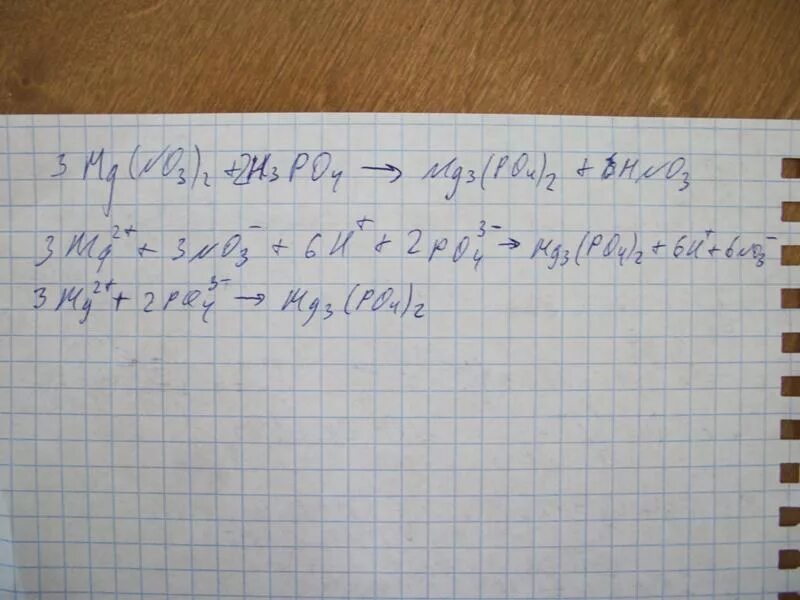 3 Mg(NO₃)₂ + 2H₃PO₄ → Mg₃(PO₄)₂ + 6HNO₃
3Mg²⁺ + 3NO₃⁻ + 6H⁺ + 2PO₄³⁻ → Mg₃(PO₄)₂ + 6H⁺ + 6NO₃⁻
3Mg²⁺ + 2PO₄³⁻ → Mg₃(PO₄)₂